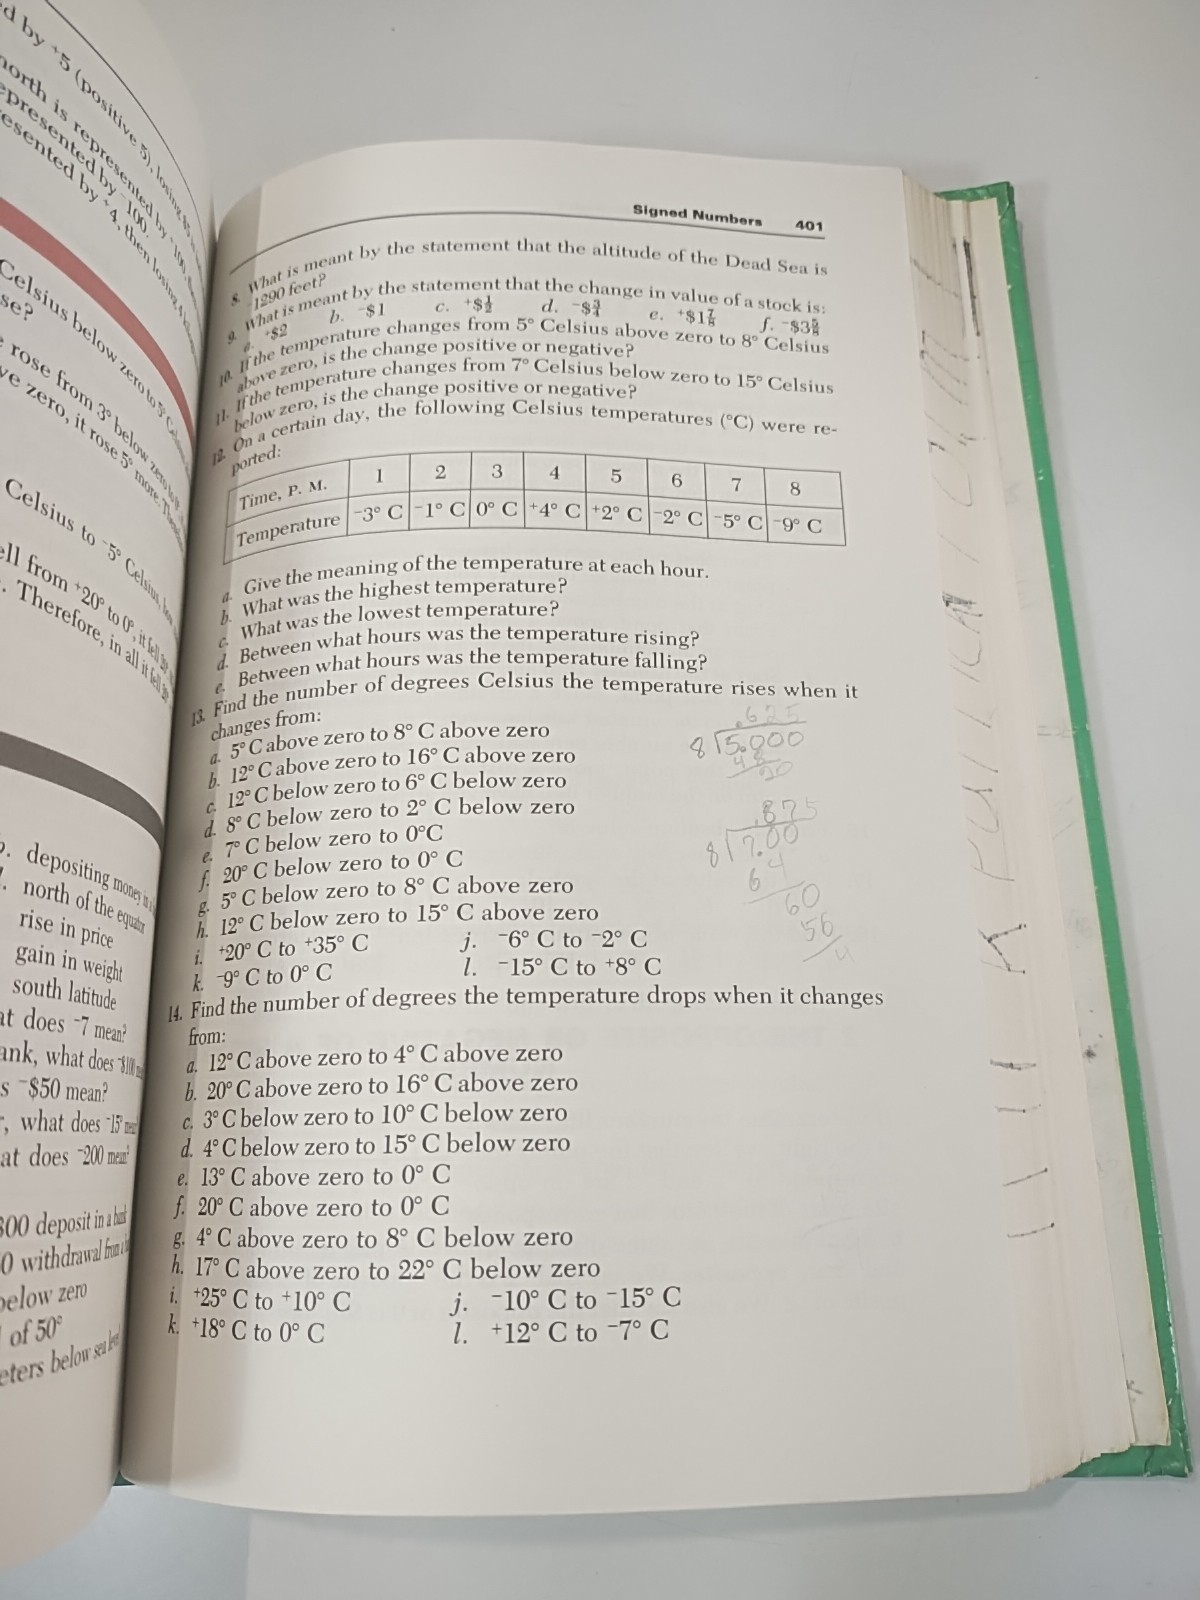 d by +5 (positive 5), losing $5
north is represented by +100,
epresented by -100.
esented by +4, then losing 4
Celsius below zero to 5° Celsius
se?
rose from 3° below zero to 0°,
ve zero, it rose 5° more. Therefore
Celsius to -5° Celsius, how
ell from +20° to 0°, it fell 20°
. Therefore, in all it fell
b. depositing money in a
north of the equator
rise in price
gain in weight
south latitude
at does -7 mean?
ank, what does -$100 mean
s -$50 mean?
, what does -15° mean
at does -200 mean?
300 deposit in a bank
0 withdrawal from a
below zero
of 50°
eters below sea level
Signed Numbers 401
8. What is meant by the statement that the altitude of the Dead Sea is
-1290 feet?
9. What is meant by the statement that the change in value of a stock is:
a. +$2 b. -$1 c. +$½ d. -$¾ e. +$1⅞ f. -$3⅝
10. If the temperature changes from 5° Celsius above zero to 8° Celsius
above zero, is the change positive or negative?
11. If the temperature changes from 7° Celsius below zero to 15° Celsius
below zero, is the change positive or negative?
12. On a certain day, the following Celsius temperatures (°C) were re-
ported:
Time, P. M. 1 2 3 4 5 6 7 8
Temperature -3° C -1° C 0° C +4° C +2° C -2° C -5° C -9° C
a. Give the meaning of the temperature at each hour.
b. What was the highest temperature?
c. What was the lowest temperature?
d. Between what hours was the temperature rising?
e. Between what hours was the temperature falling?
13. Find the number of degrees Celsius the temperature rises when it
changes from:
a. 5° C above zero to 8° C above zero
b. 12° C above zero to 16° C above zero
c. 12° C below zero to 6° C below zero
d. 8° C below zero to 2° C below zero
e. 7° C below zero to 0°C
f. 20° C below zero to 0° C
g. 5° C below zero to 8° C above zero
h. 12° C below zero to 15° C above zero
i. +20° C to +35° C j. -6° C to -2° C
k. -9° C to 0° C l. -15° C to +8° C
14. Find the number of degrees the temperature drops when it changes
from:
a. 12° C above zero to 4° C above zero
b. 20° C above zero to 16° C above zero
c. 3° C below zero to 10° C below zero
d. 4° C below zero to 15° C below zero
e. 13° C above zero to 0° C
f. 20° C above zero to 0° C
g. 4° C above zero to 8° C below zero
h. 17° C above zero to 22° C below zero
i. +25° C to +10° C j. -10° C to -15° C
k. +18° C to 0° C l. +12° C to -7° C
.625
8 5.000
48
20
.875
8 7.00
64
60
56
4